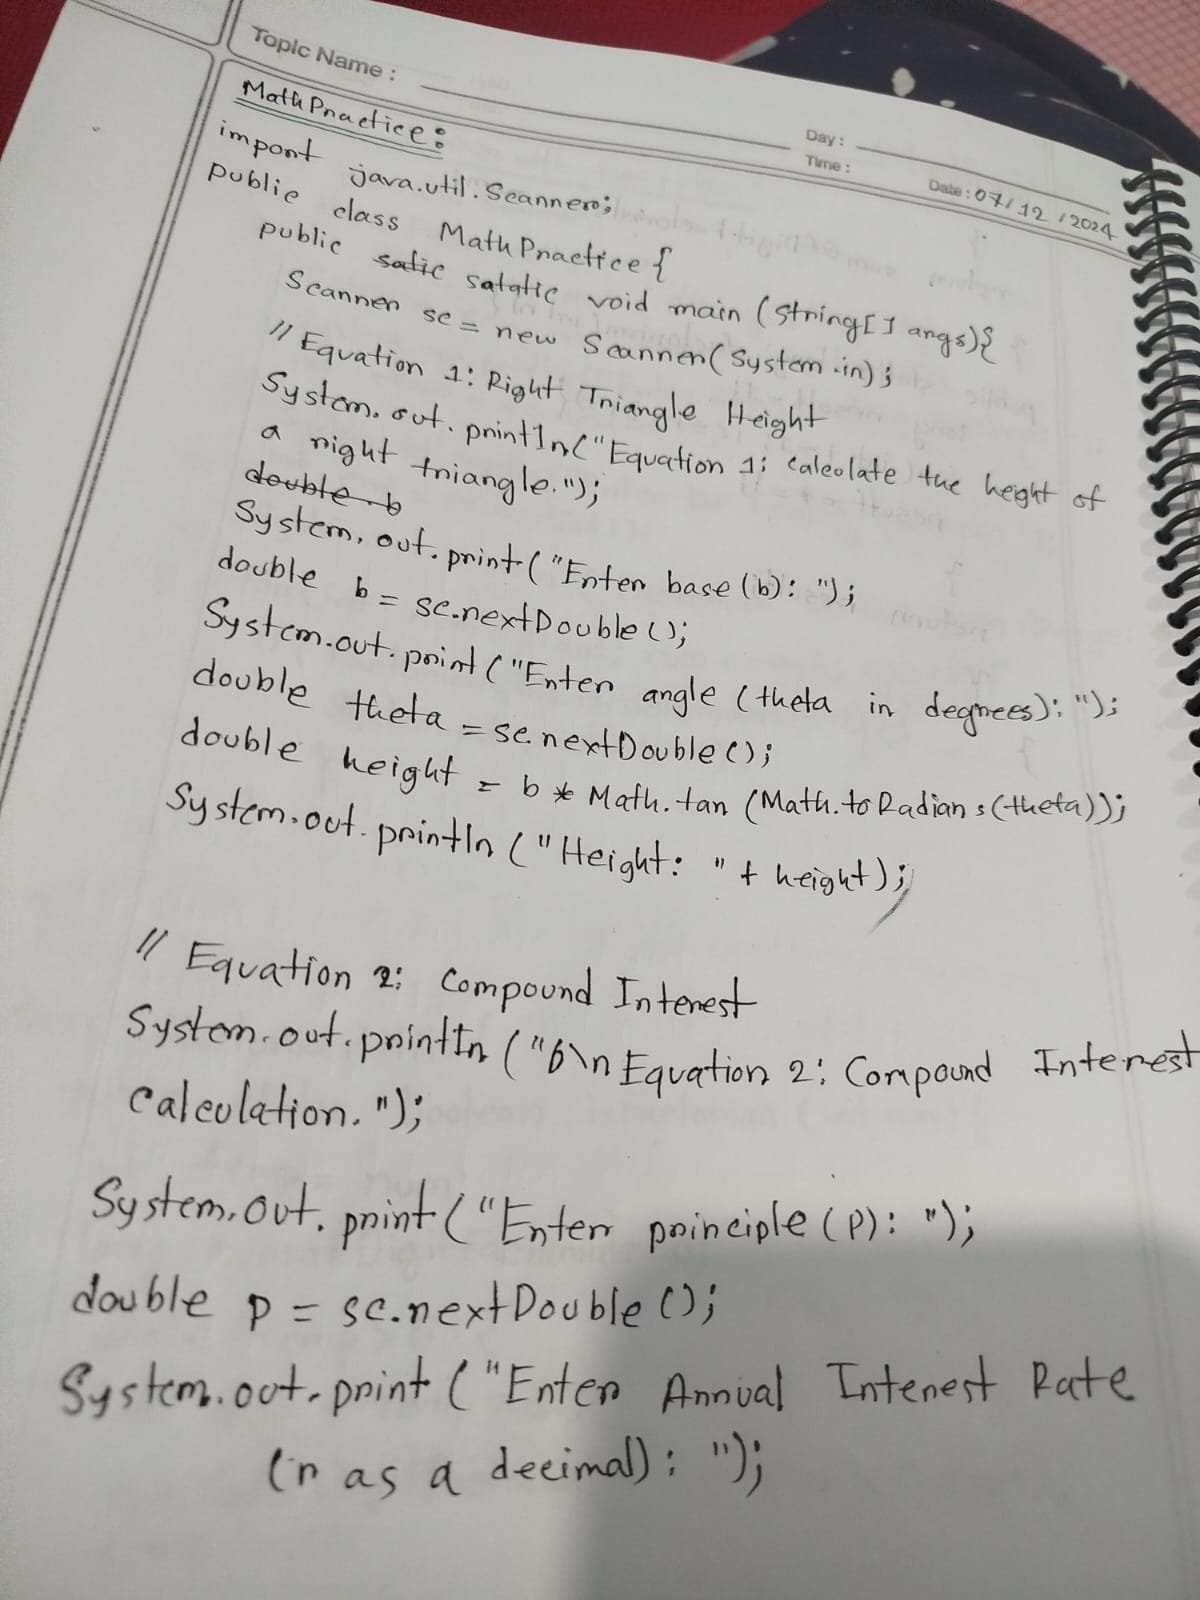 Topic Name :
Day :
Time :
Date : 07/12/2024
Math Practice:
import java.util.Scanner;
public class MathPractice {
public satic satatic void main (String[] args){
Scanner sc = new Scanner(System.in);
// Equation 1: Right Triangle Height
System.out.println("Equation 1: Calculate the height of
a right triangle.");
double b
System.out.print("Enter base (b): ");
double b = sc.nextDouble();
System.out.print("Enter angle (theta in degrees): ");
double theta = sc.nextDouble();
double height = b * Math.tan (Math.toRadians(theta));
System.out.println ("Height: " + height);
// Equation 2: Compound Interest
System.out.println ("\n Equation 2: Compound Interest
Calculation.");
System.out.print ("Enter principle (p): ");
double p = sc.nextDouble();
System.out.print ("Enter Annual Interest Rate
(r as a decimal): ");